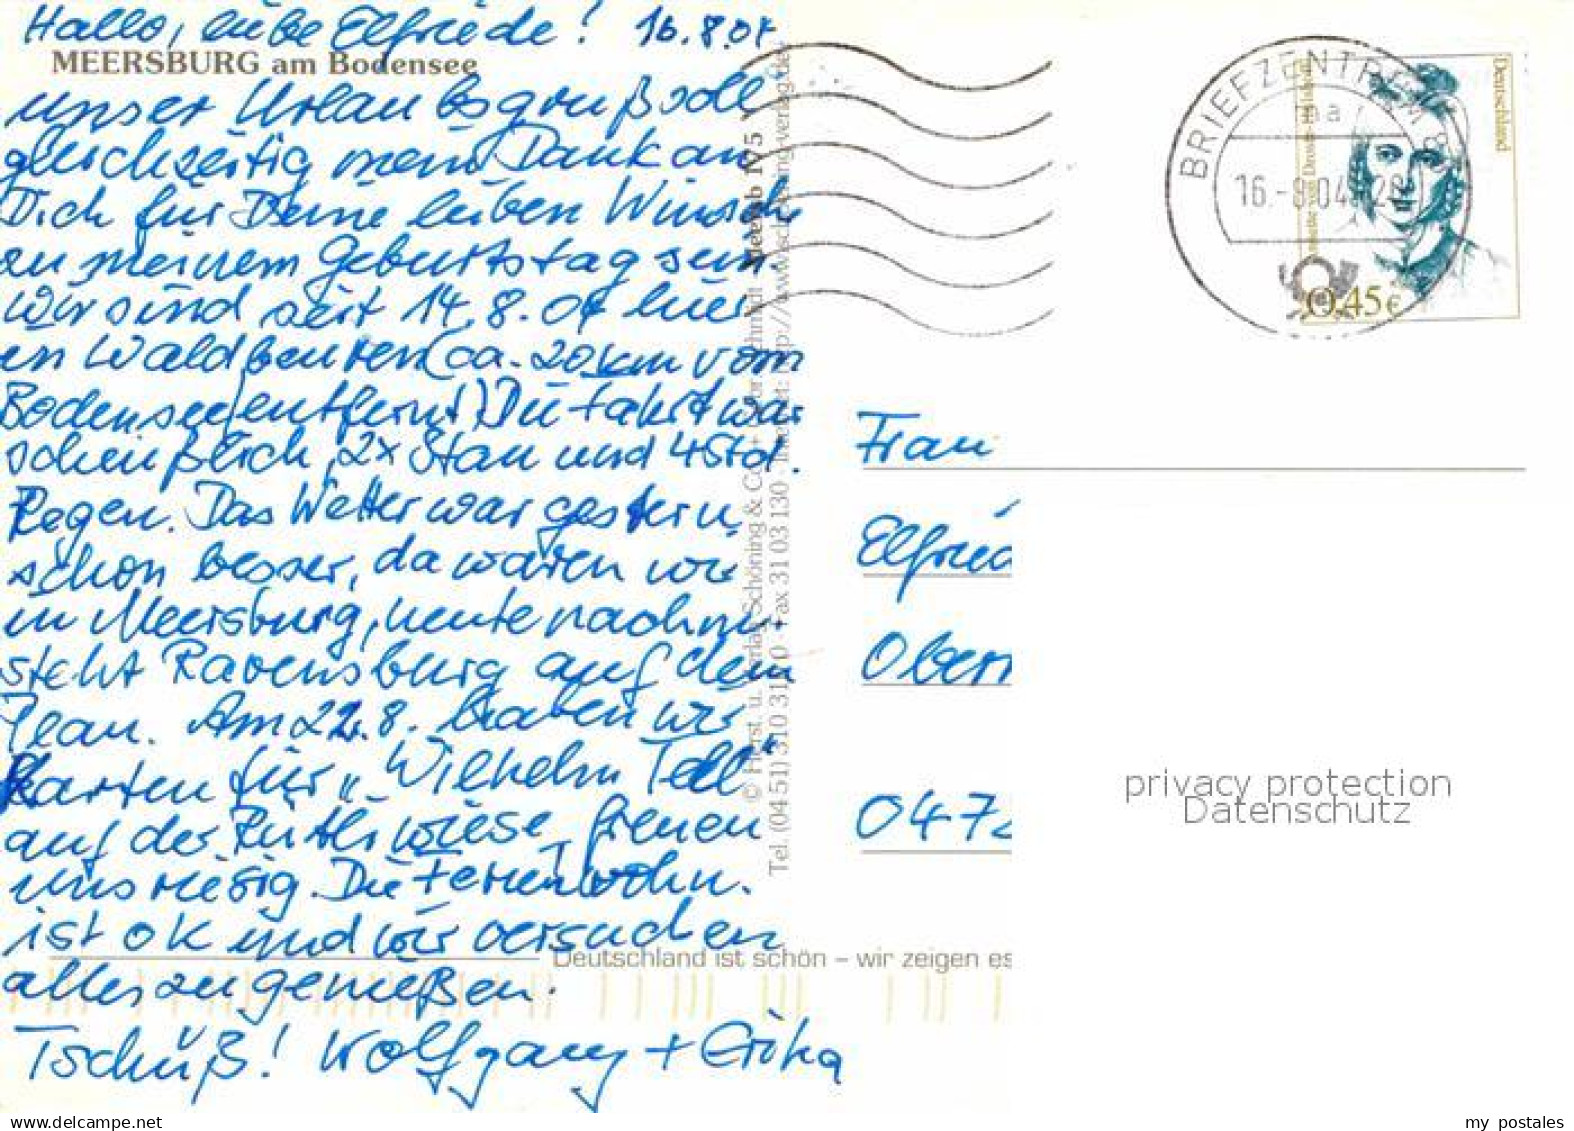 Hallo, liebe Elfriede! 16.8.04
MEERSBURG am Bodensee
unser Urlaubsgruß soll
gleichzeitig mein Dank an
Dich für Deine lieben Wünsche
zu meinem Geburtstag sein.
Wir sind seit 14.8.04 hier
in Waldbeuren (ca. 20 km vom
Bodensee entfernt). Die Fahrt war
scheußlich, 2x Stau und 4 Std.
Regen. Das Wetter war gestern
schon besser, da waren wir
in Meersburg, heute nachm.
steht Ravensburg auf dem
Plan. Am 22.8. haben wir
Karten für „Wilhelm Tell"
auf der Rütliwiese, freuen
uns riesig. Die Ferienwohn.
ist ok und wir versuchen
alles zu genießen.
Tschüß! Wolfgang + Erika
Deutschland ist schön – wir zeigen es
© Horst u. Verlag Schöning & Co. + Schmidt
Tel. (04 51) 310 31 70 · Fax 31 03 130 · Internet: http://www.schoening-verlag.de
Meersb 175
BRIEFZENTRUM 8
ma
16.-8.04
Deutschland
0,45 €
Frau
Elfried
Obern
0472
privacy protection
Datenschutz
my postales
www.delcampe.net